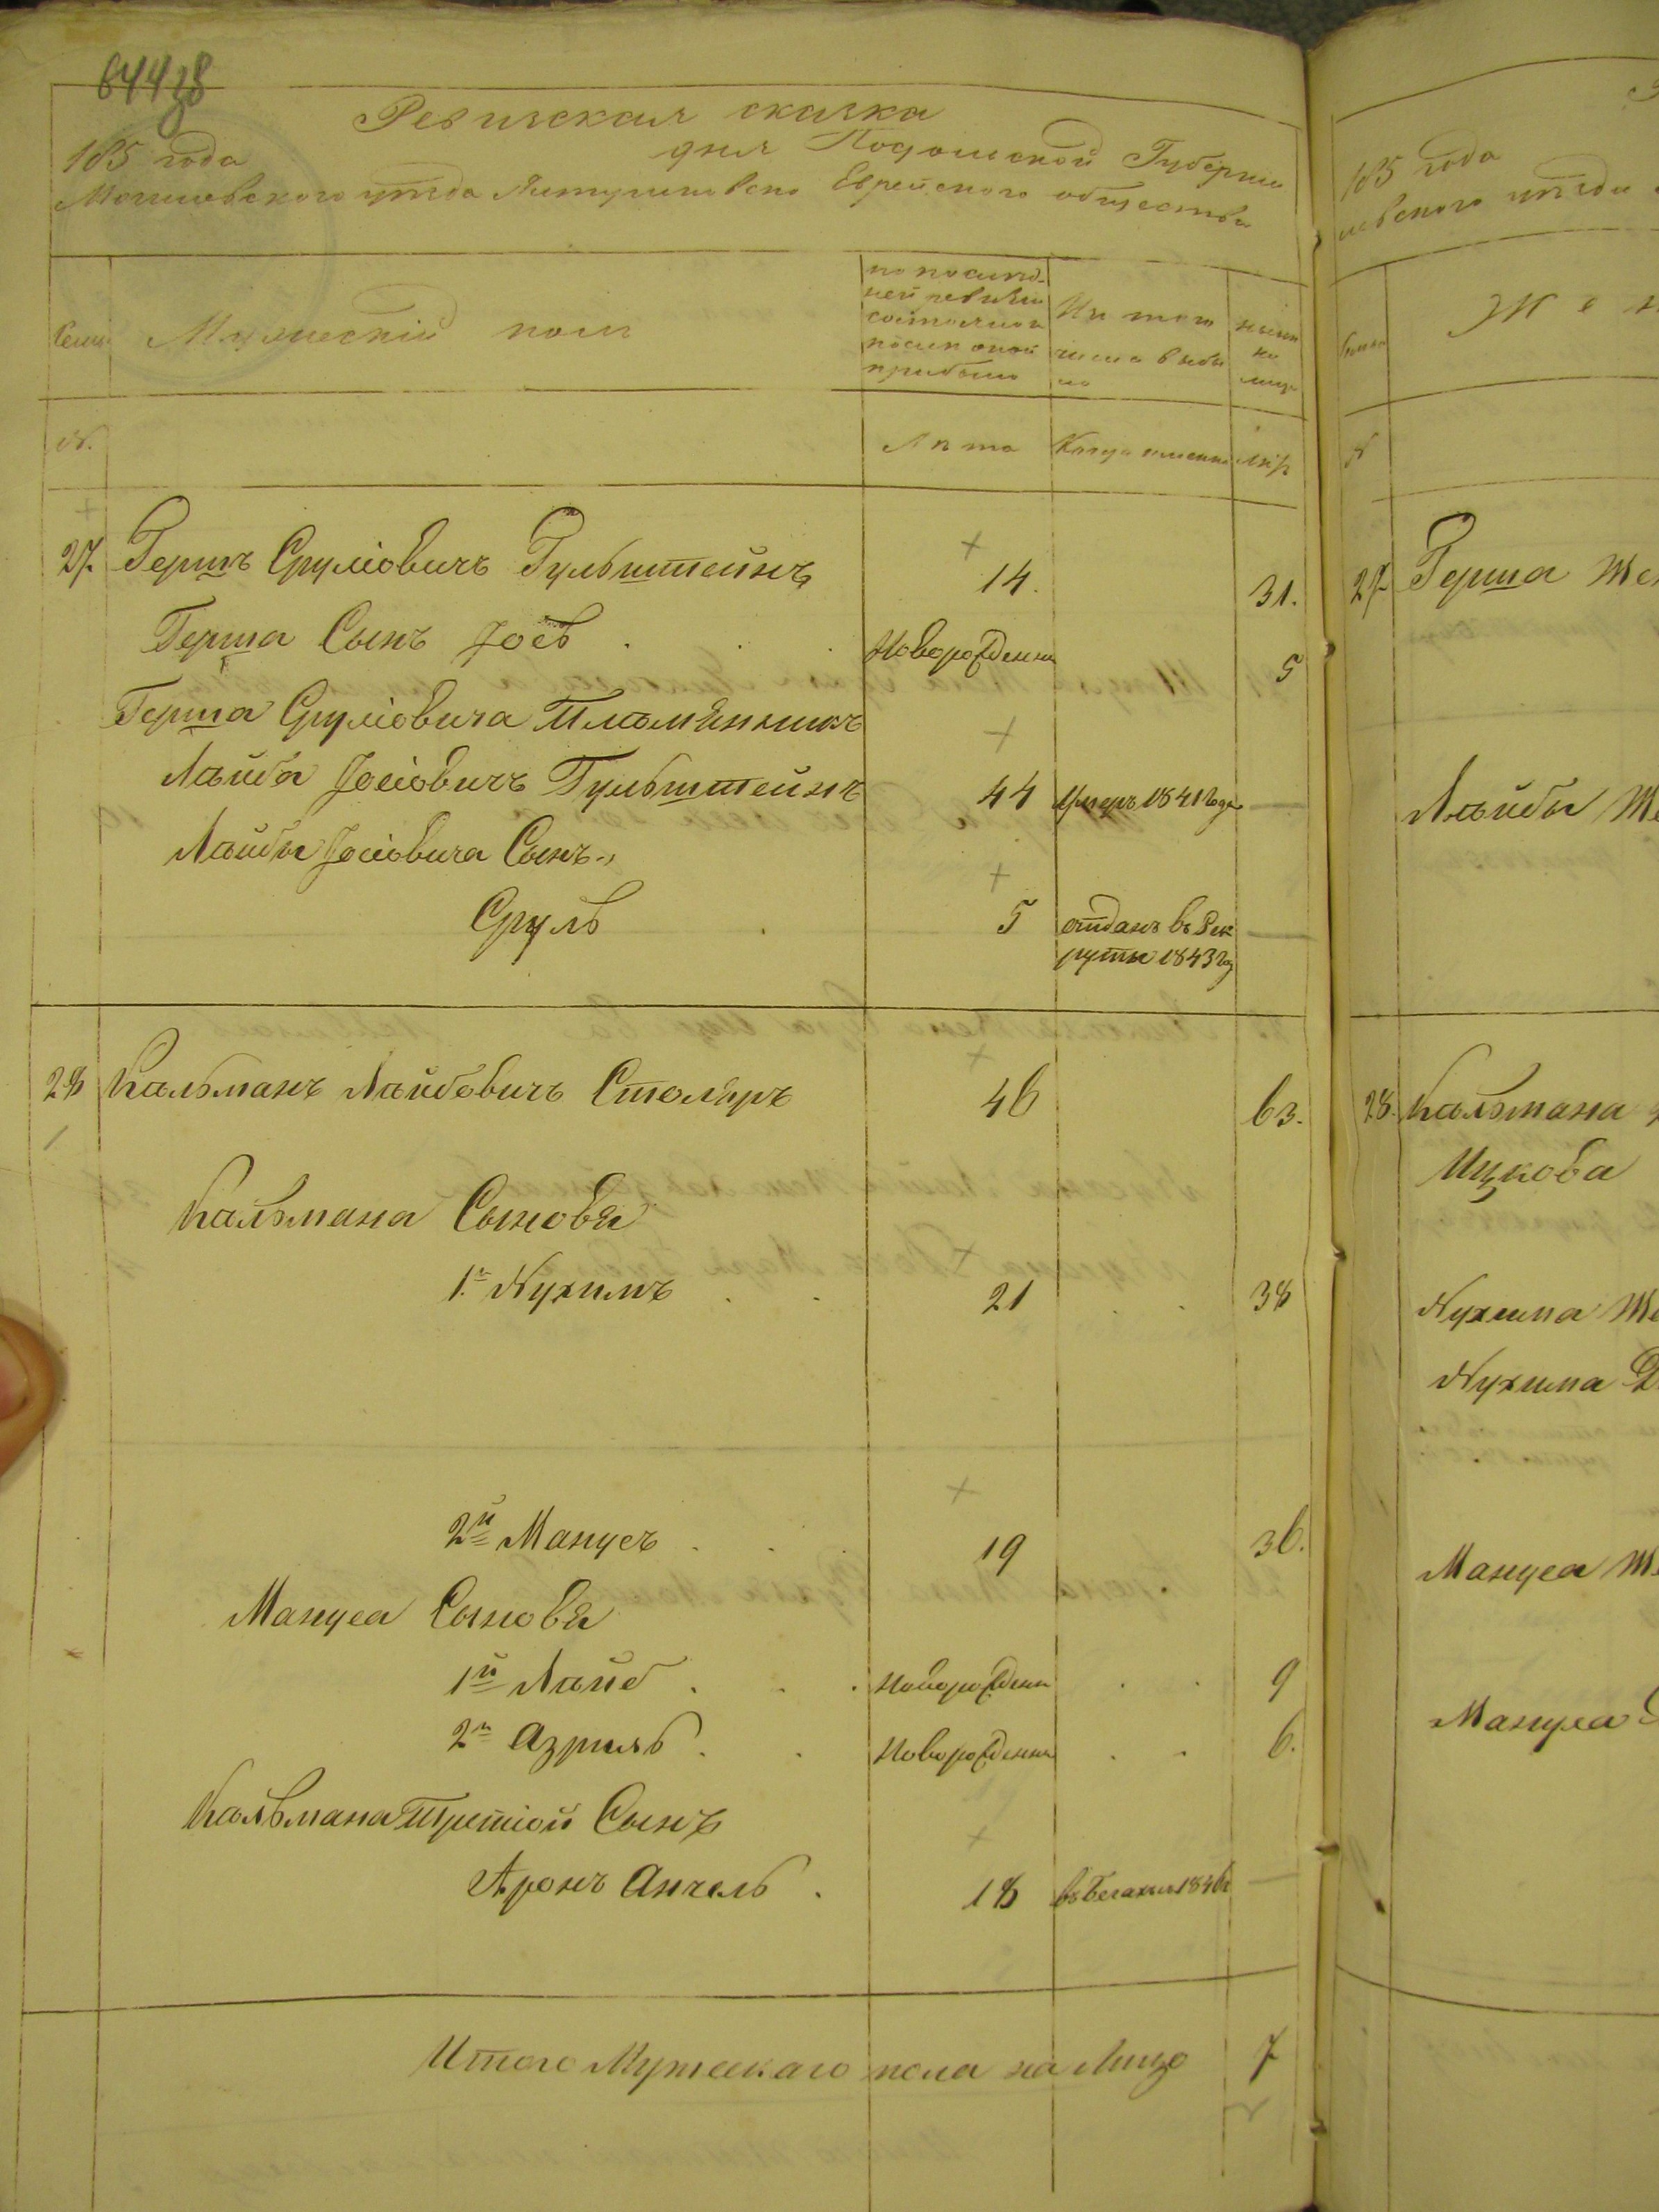 Ревизская сказка
185 года
дня Подольской Губернии
Могилевского уѣзда Еврейского общества
Семьи
Мужескій полъ
по послѣд-
ней ревизіи
состояло и
послѣ оной
прибыло
Из того
числа выбы
ло
нынѣ
на
лицо
№.
Лѣта
Когда именно
Лѣта
27. Гершъ Сруліовичъ Гульштейнъ 14. 31.
Герша Сынъ Іось Новорожденны 5
Герша Сруліовича Племѣнникъ
Лейба Іосіовичъ Гульштейнъ 44 Умеръ 1841 года
Лейбы Іосіовича Сынъ
Сруль 5 отданъ въ Рек
руты 1843 го
28 Кальманъ Лейбовичъ Столяръ 46 63.
Кальмана Сыновья
1й Нухимъ 21 38
2й Манусъ 19 36.
Мануса Сыновья
1й Лейб Новорожден 9
2й Азриль Новорожденны 6.
Кальмана Третіой Сынъ
Аронъ Анчель 18 въ бегахъ 1846г
Итого Мужескаго пола на Лицо 7
185 года
уѣзда
№
27 Герша Же
Лейбы Же
28. Кальмана
Ицкова
Нухима Же
Нухима Д
Мануса Же
Мануса